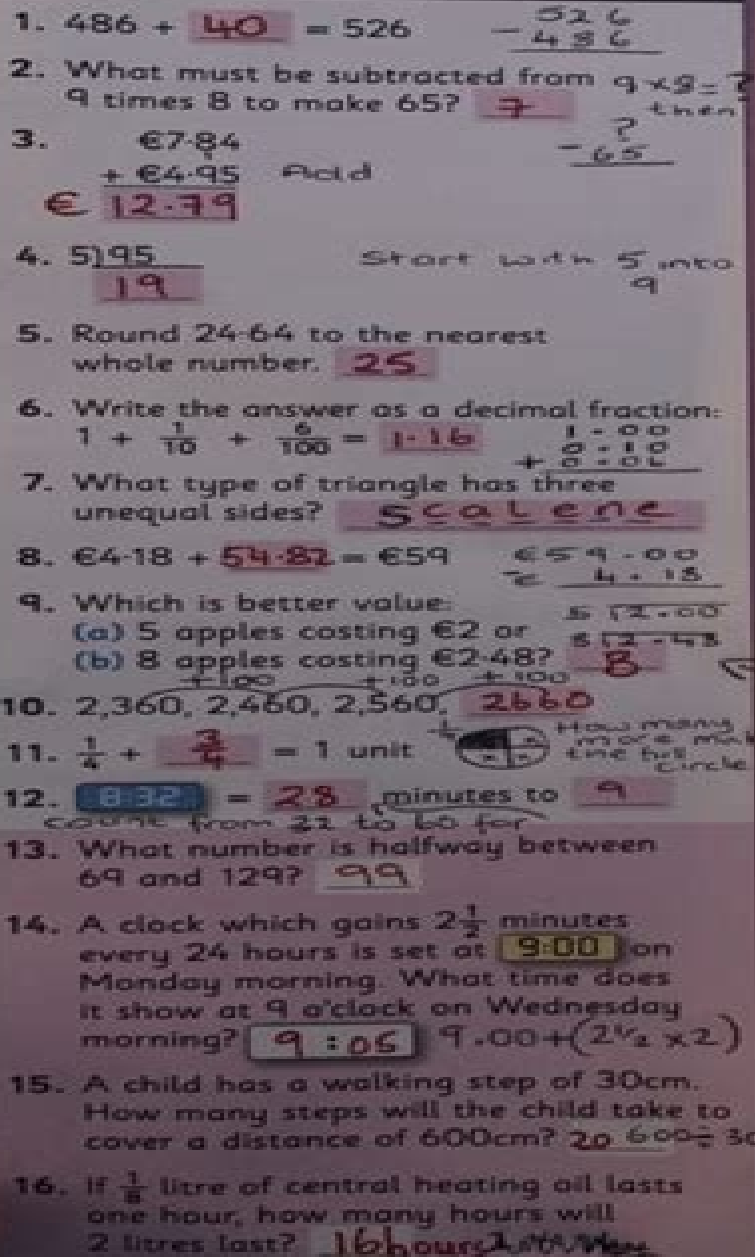 1. 486 + 40 = 526 526
- 486
2. What must be subtracted from 9 x 8 = ?
9 times 8 to make 65? 7 then
3. €7·84 ?
- 65
+ €4·95 Add
€ 12.79
4. 5)95 Start with 5 into
19 9
5. Round 24·64 to the nearest
whole number. 25
6. Write the answer as a decimal fraction:
1 + 1/10 + 6/100 = 1.16 1.00
0.10
+ 0.06
7. What type of triangle has three
unequal sides? scalene
8. €4·18 + 54.82 = €59 €59.00
- € 4.18
9. Which is better value:
(a) 5 apples costing €2 or 5 √2.00
(b) 8 apples costing €2·48? 8 8 √2.48
+100 +100 +100
10. 2,360, 2,460, 2,560, 2660
11. 1/4 + 3/4 = 1 unit 1/4 How many
more
the full
circle
12. 8:32 = 28 minutes to 9
count from 32 to 60 for
13. What number is halfway between
69 and 129? 99
14. A clock which gains 2 1/2 minutes
every 24 hours is set at 9:00 on
Monday morning. What time does
it show at 9 o'clock on Wednesday
morning? 9:05 9.00 + (2 1/2 x 2)
15. A child has a walking step of 30cm.
How many steps will the child take to
cover a distance of 600cm? 20 600 ÷ 30
16. If 1/8 litre of central heating oil lasts
one hour, how many hours will
2 litres last? 16 hours